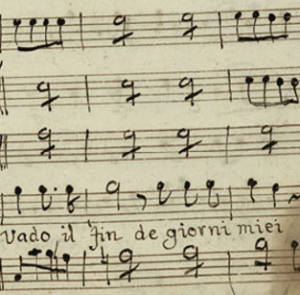 vado, il fin de giorni miei